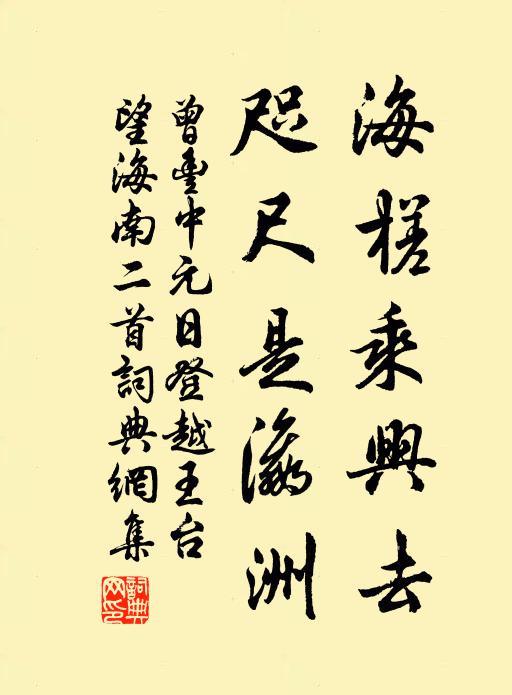 海槎乘興去
咫尺是瀛洲
曾豊中元日登越王台
望海南二首詞典網集
詞典網印